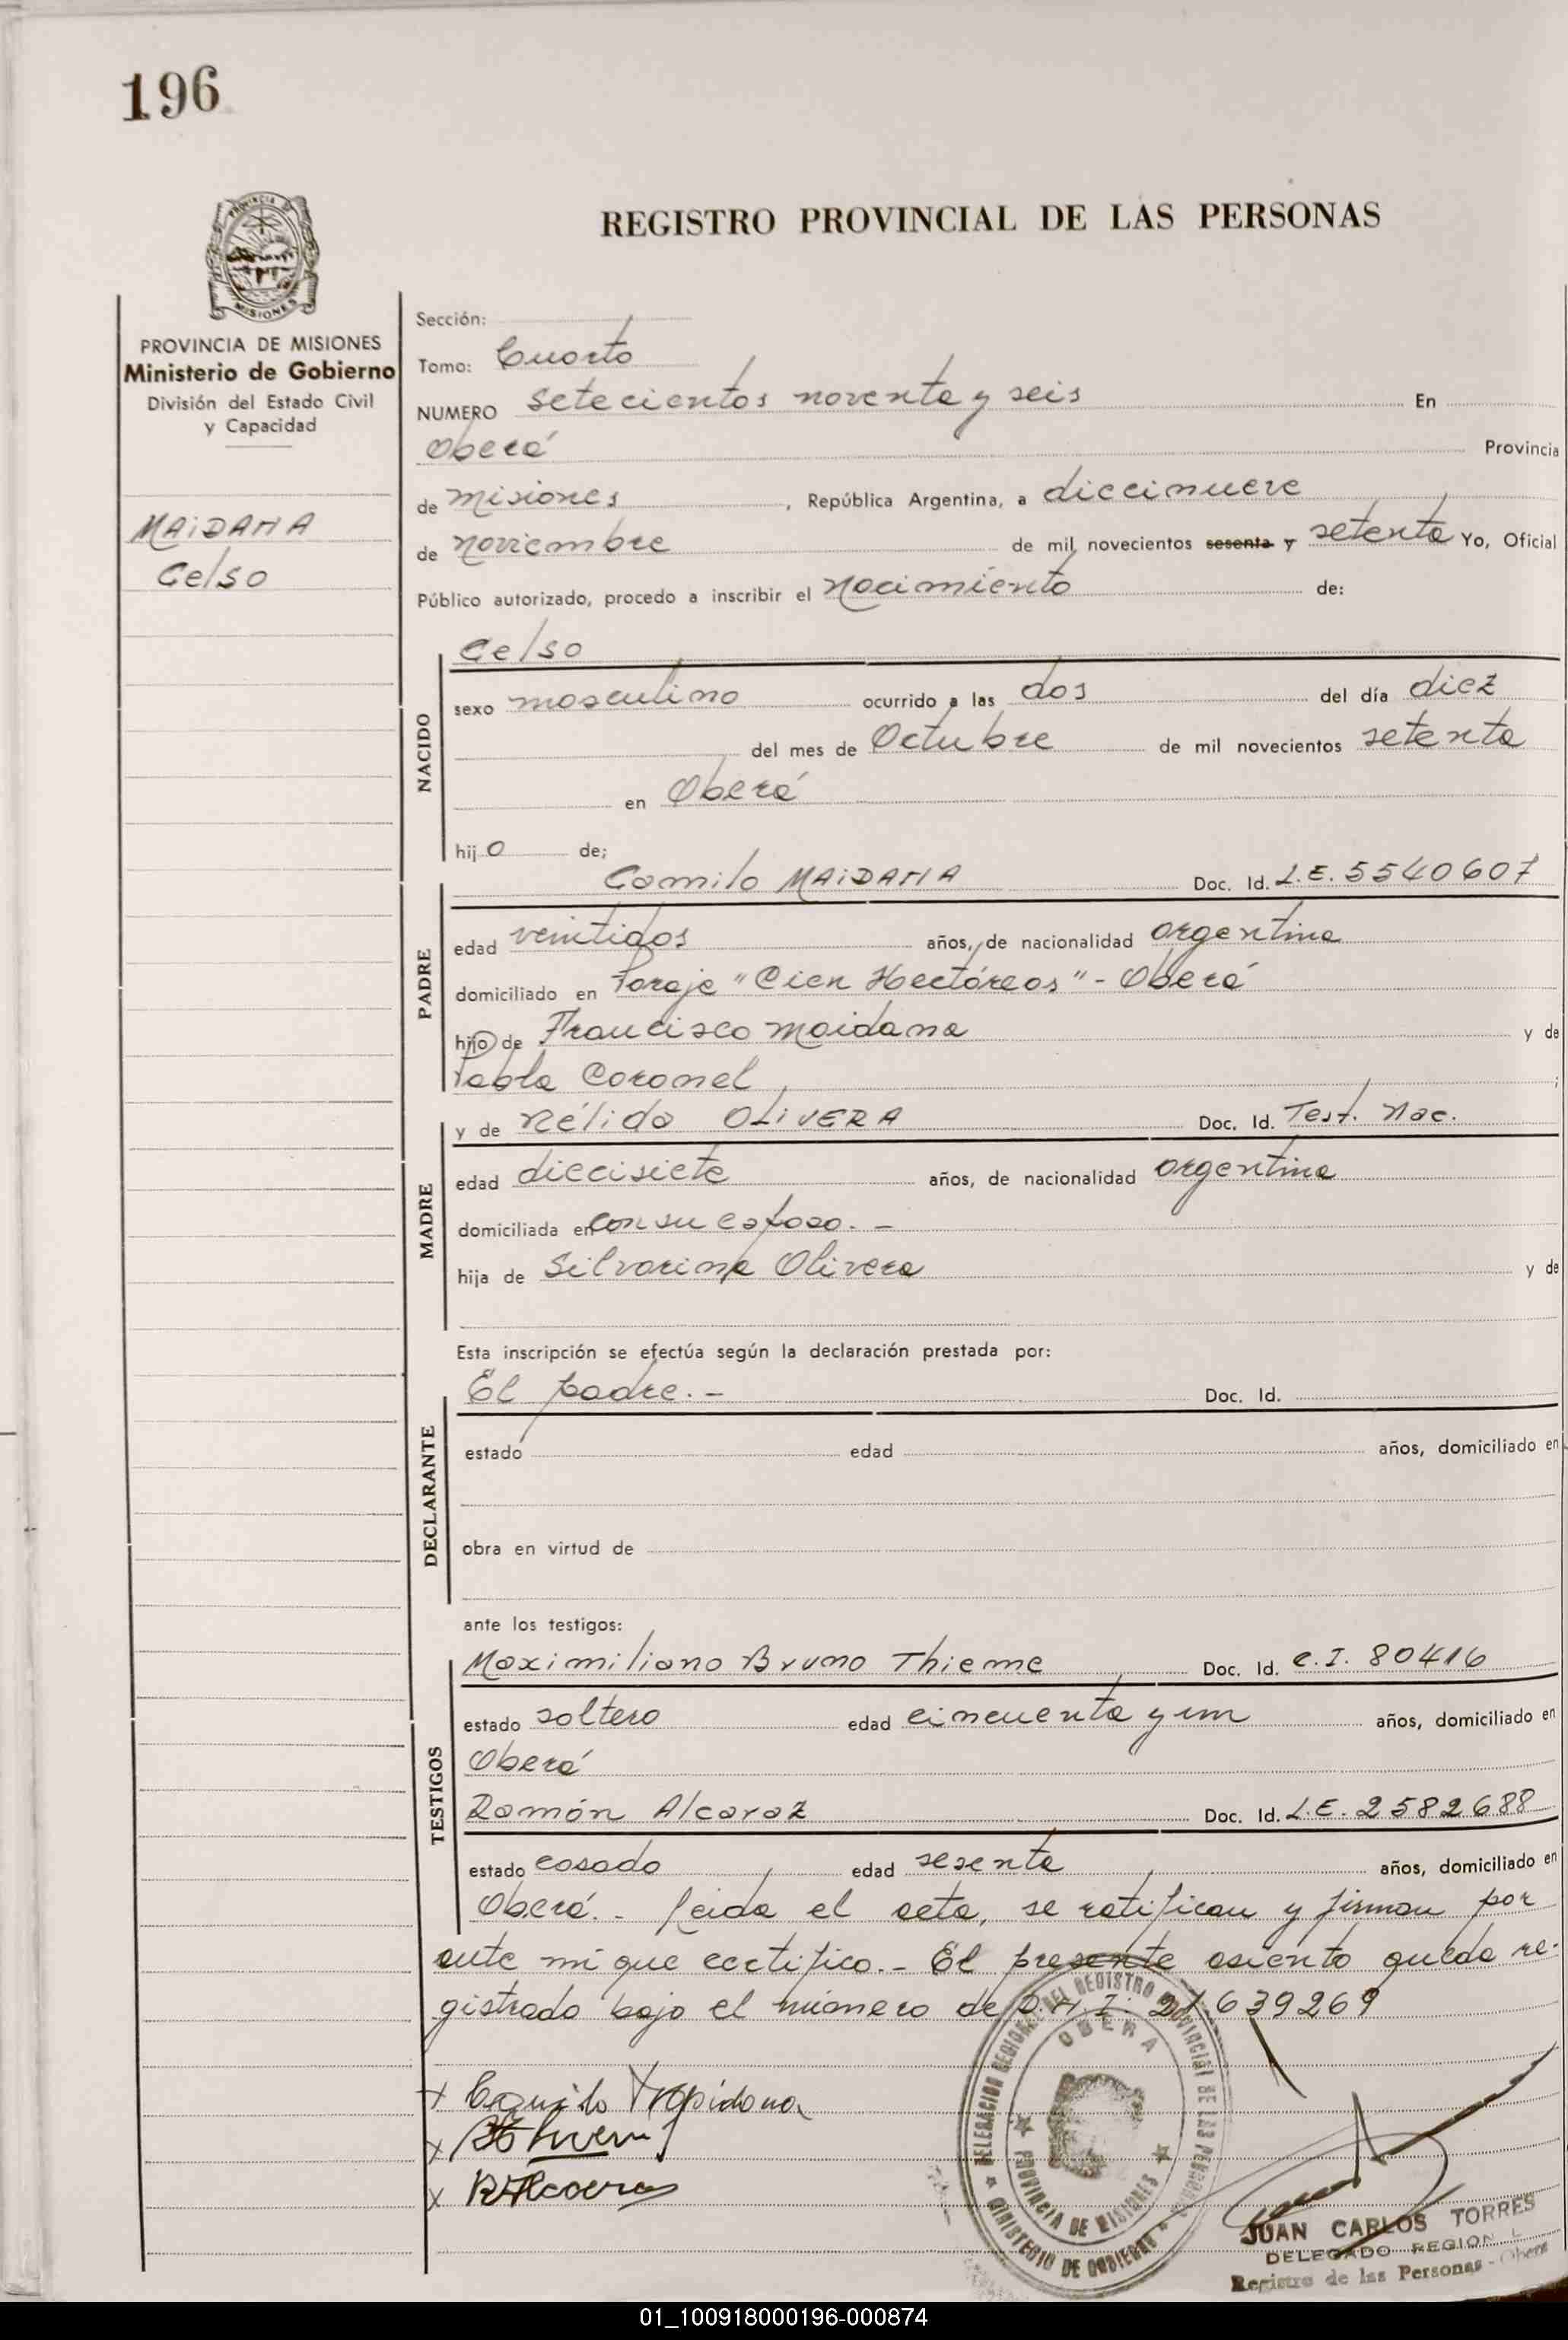 196
REGISTRO PROVINCIAL DE LAS PERSONAS
PROVINCIA DE MISIONES
Ministerio de Gobierno
División del Estado Civil
y Capacidad
MAIDANA
Celso
Sección:
Tomo: Cuarto
NUMERO setecientos noventa y seis En
Oberá Provincia
de Misiones, República Argentina, a diecinueve
de noviembre de mil novecientos sesenta y setenta Yo, Oficial
Público autorizado, procedo a inscribir el Nacimiento de:
NACIDO
Celso
sexo masculino ocurrido a las dos del día diez
del mes de Octubre de mil novecientos setenta
en Oberá
hijo de;
PADRE
Camilo MAIDANA Doc. Id. L.E. 5540607
edad venitidos años, de nacionalidad argentina
domiciliado en Paraje "Cien Hectáreas" - Oberá
hijo de Francisco Maidana y de
Pabla Coronel ;
MADRE
y de Nélida OLIVERA Doc. Id. Test. Nac.
edad diecisiete años, de nacionalidad argentina
domiciliada en con su esposo. -
hija de Silvarina Olivera y de
Esta inscripción se efectúa según la declaración prestada por:
DECLARANTE
El padre. - Doc. Id.
estado edad años, domiciliado en
obra en virtud de
ante los testigos:
TESTIGOS
Maximiliano Bruno Thieme Doc. Id. C.I. 80416
estado soltero edad cincuenta y un años, domiciliado en
Oberá
Ramón Alcaraz Doc. Id. L.E. 2582688
estado casado edad sesenta años, domiciliado en
Oberá. - Leida el acta, se ratifican y firman por
ante mi que certifico. - El presente asiento queda re-
gistrado bajo el número de D.N.I. 21.639269
Camilo Maidana
R Alcaraz
DELEGACION REGIONAL DEL REGISTRO PROVINCIAL DE LAS PERSONAS
OBERA
PROVINCIA DE MISIONES
MINISTERIO DE GOBIERNO
JUAN CARLOS TORRES
DELEGADO REGIONAL
Registro de las Personas - Oberá
01_100918000196-000874